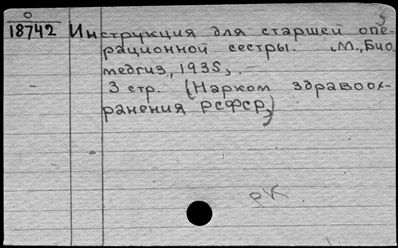 0
18742 Инструкция для старшей опе-
рационной сестры. М., Био
медгиз, 1935, -
3 стр. (Нарком здравоох-
ранения РСФСР)